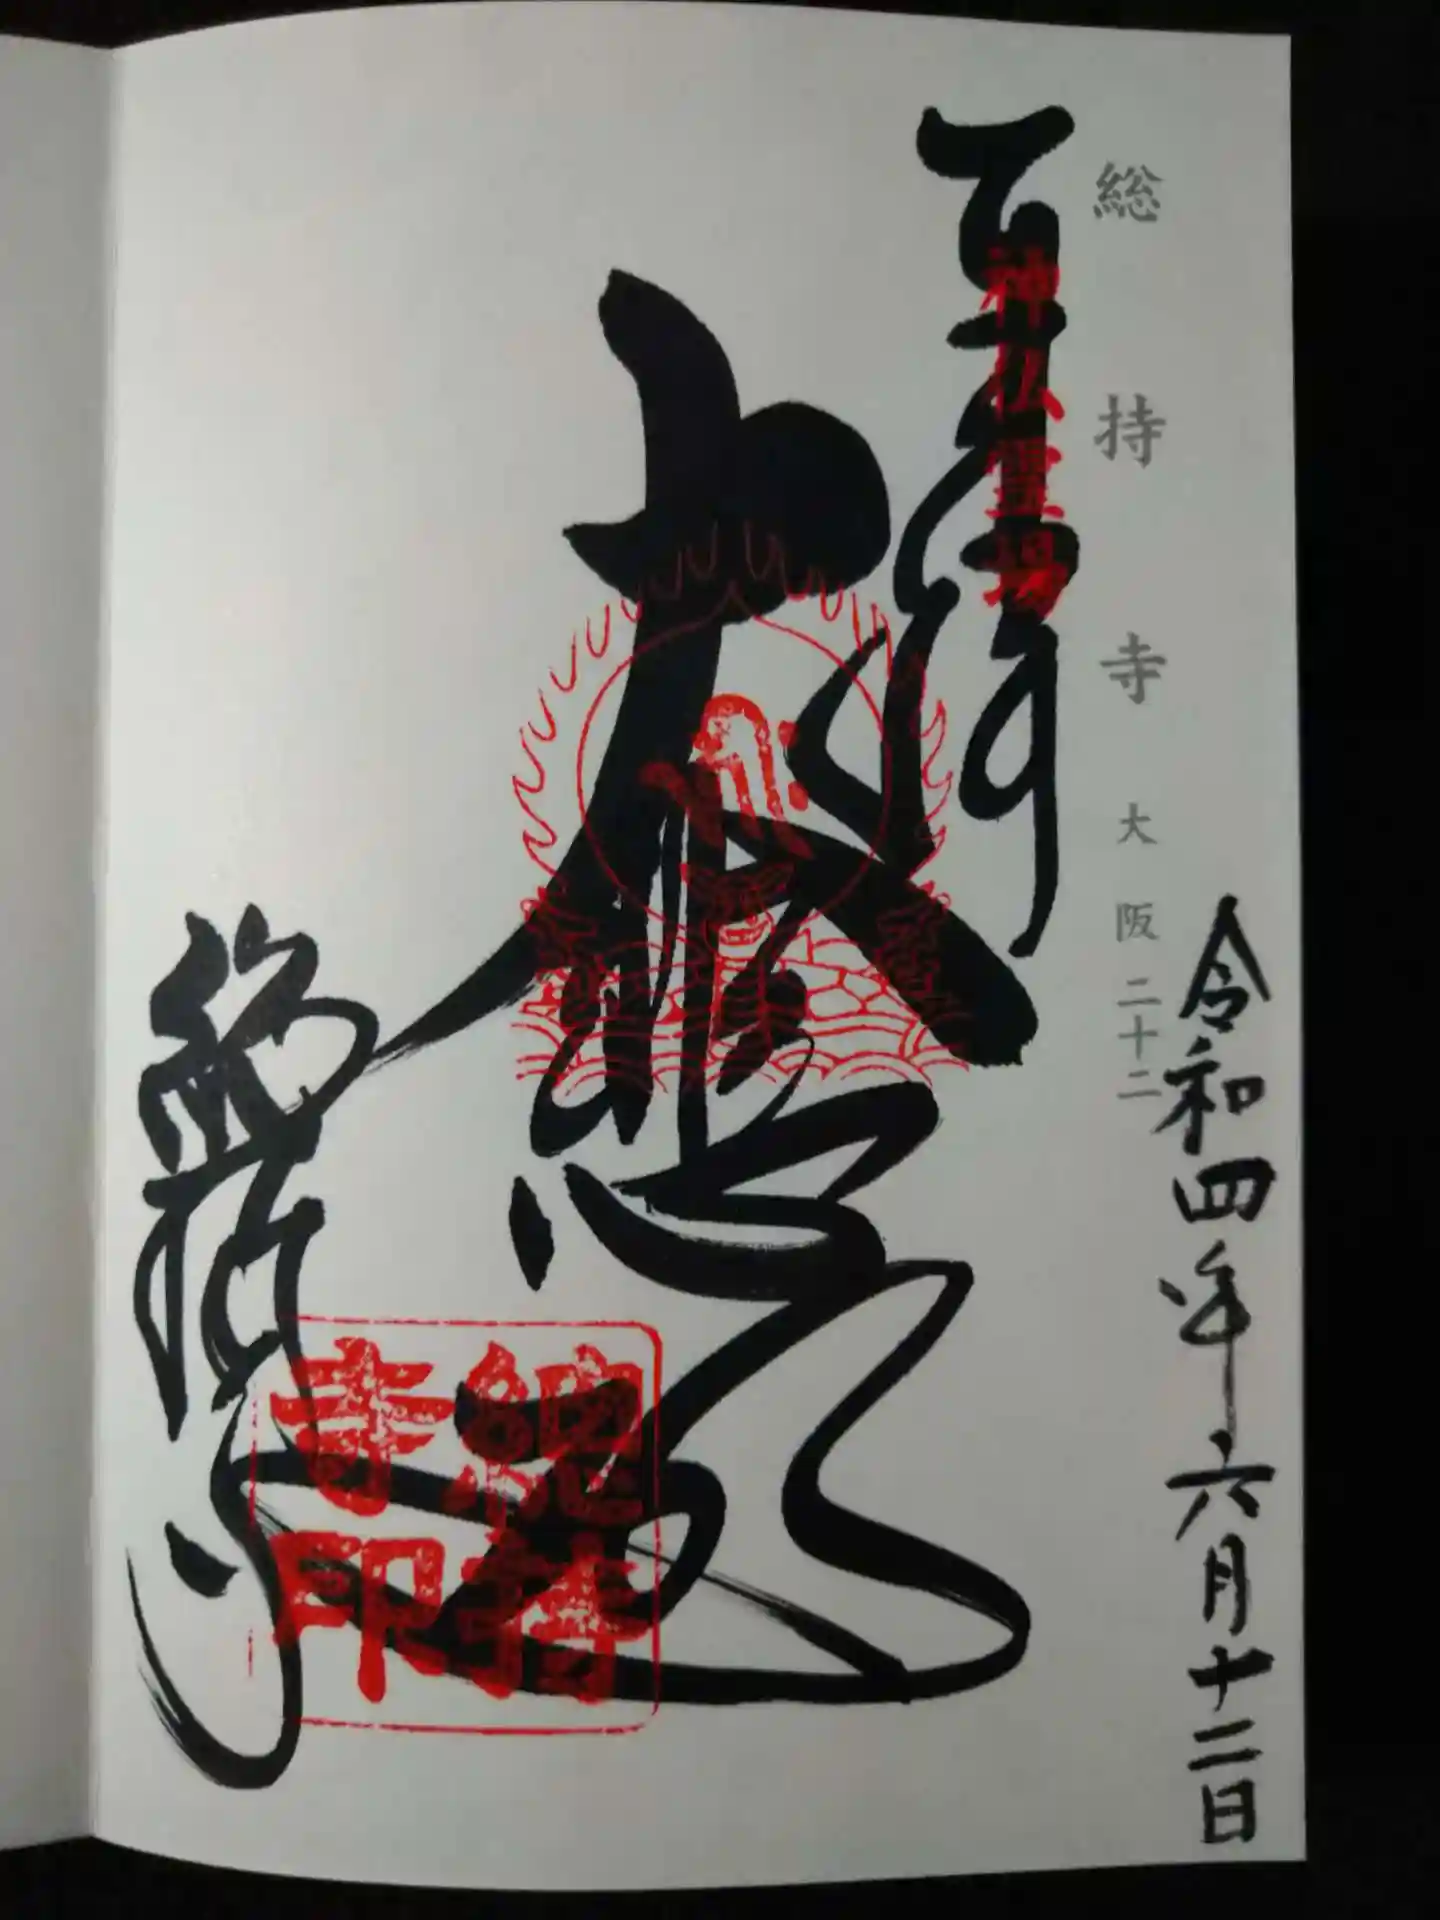 総持寺 大阪二十二
令和四年六月十二日
神仏霊場
大悲
総持寺
總持寺印